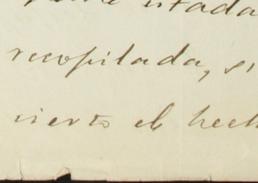 estada
recopilada, si
cierto el hech